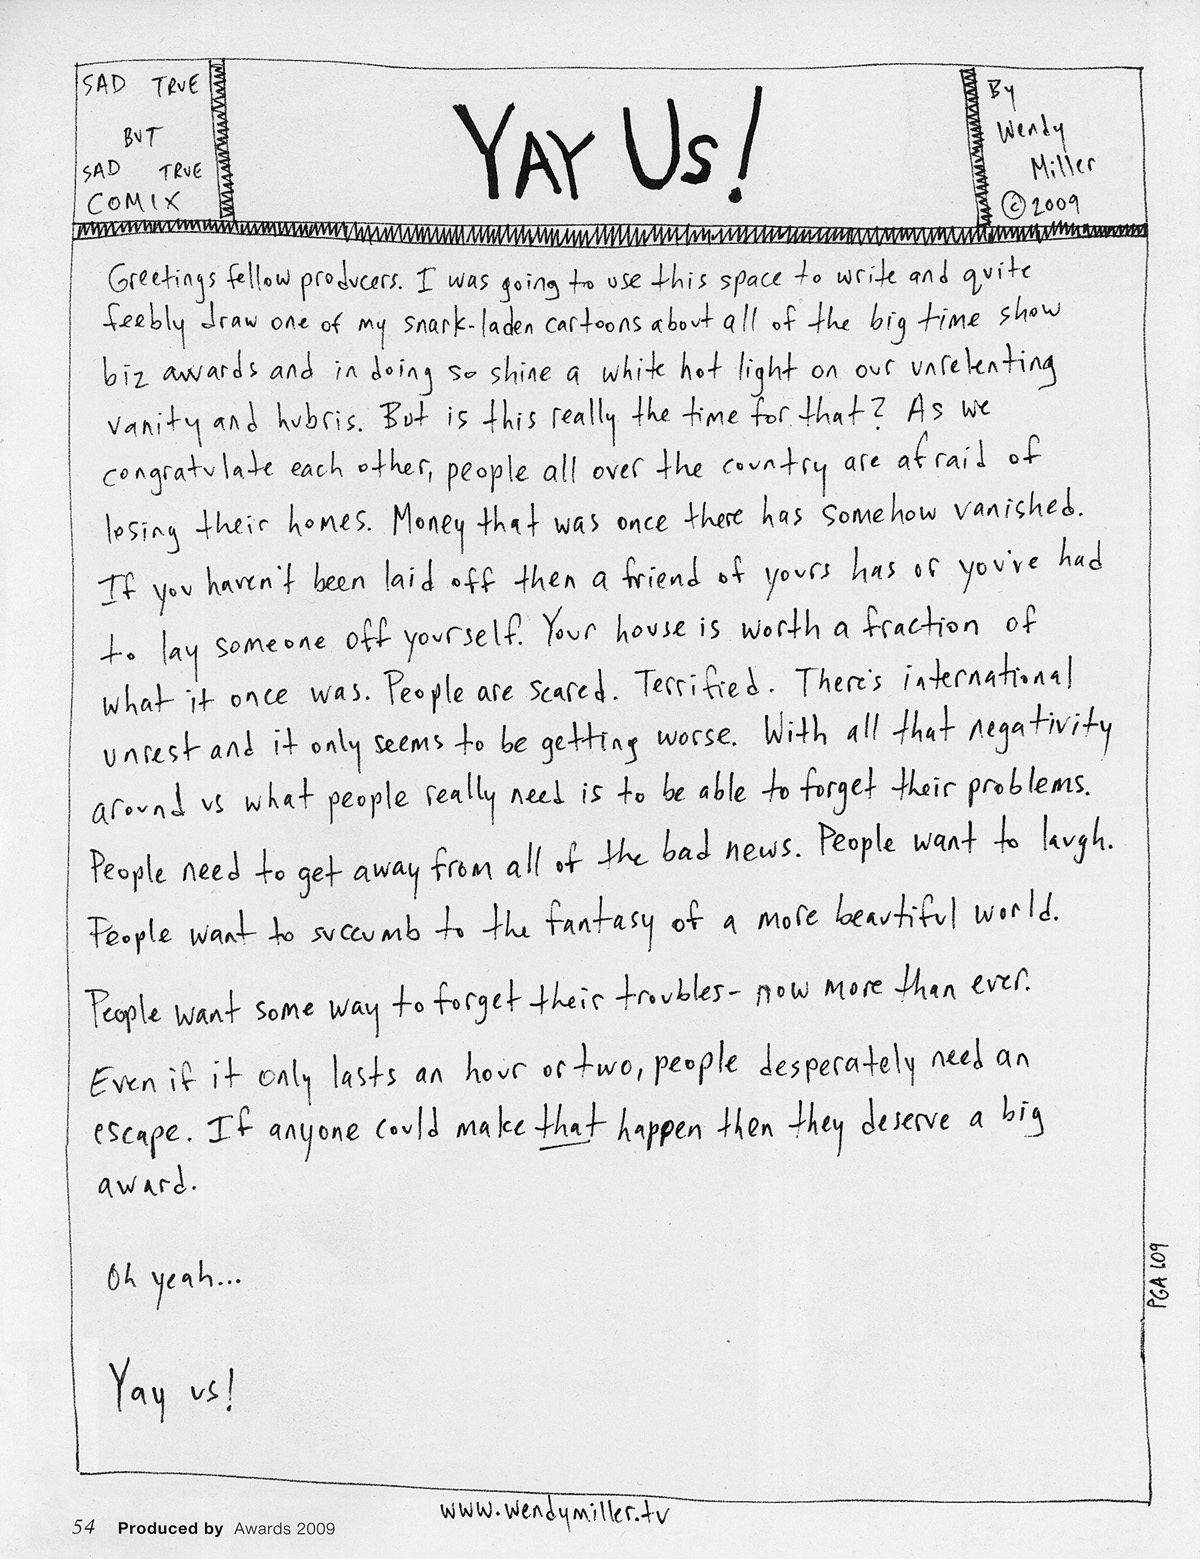 SAD TRUE
BUT
SAD TRUE
COMIX
YAY US!
By
Wendy
Miller
© 2009
Greetings fellow producers. I was going to use this space to write and quite
feebly draw one of my snark-laden cartoons about all of the big time show
biz awards and in doing so shine a white hot light on our unrelenting
vanity and hubris. But is this really the time for that? As we
congratulate each other, people all over the country are afraid of
losing their homes. Money that was once there has somehow vanished.
If you haven't been laid off then a friend of yours has or you've had
to lay someone off yourself. Your house is worth a fraction of
what it once was. People are scared. Terrified. There's international
unrest and it only seems to be getting worse. With all that negativity
around us what people really need is to be able to forget their problems.
People need to get away from all of the bad news. People want to laugh.
People want to succumb to the fantasy of a more beautiful world.
People want some way to forget their troubles- now more than ever.
Even if it only lasts an hour or two, people desperately need an
escape. If anyone could make that happen then they deserve a big
award.
Oh yeah...
Yay us!
PGA 109
www.wendymiller.tv
54 Produced by Awards 2009